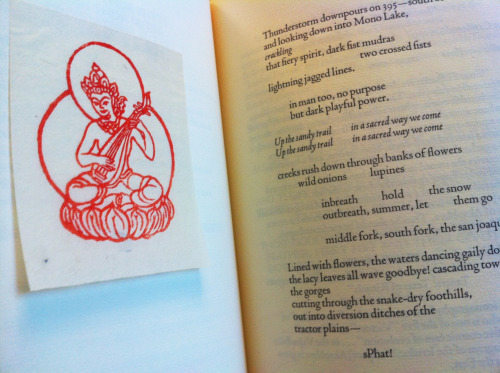 Thunderstorm downpours on 395—
and looking down into Mono Lake,
crackling
that fiery spirit, dark fist mudras
two crossed fists
lightning jagged lines.
in man too, no purpose
but dark playful power.
Up the sandy trail in a sacred way we come
Up the sandy trail in a sacred way we come
creeks rush down through banks of flowers
wild onions lupines
inbreath hold the snow
outbreath, summer, let them go
middle fork, south fork, the san joaq
Lined with flowers, the waters dancing gaily do
the lacy leaves all wave goodbye! cascading tow
the gorges
cutting through the snake-dry foothills,
out into diversion ditches of the
tractor plains—
sPhat!